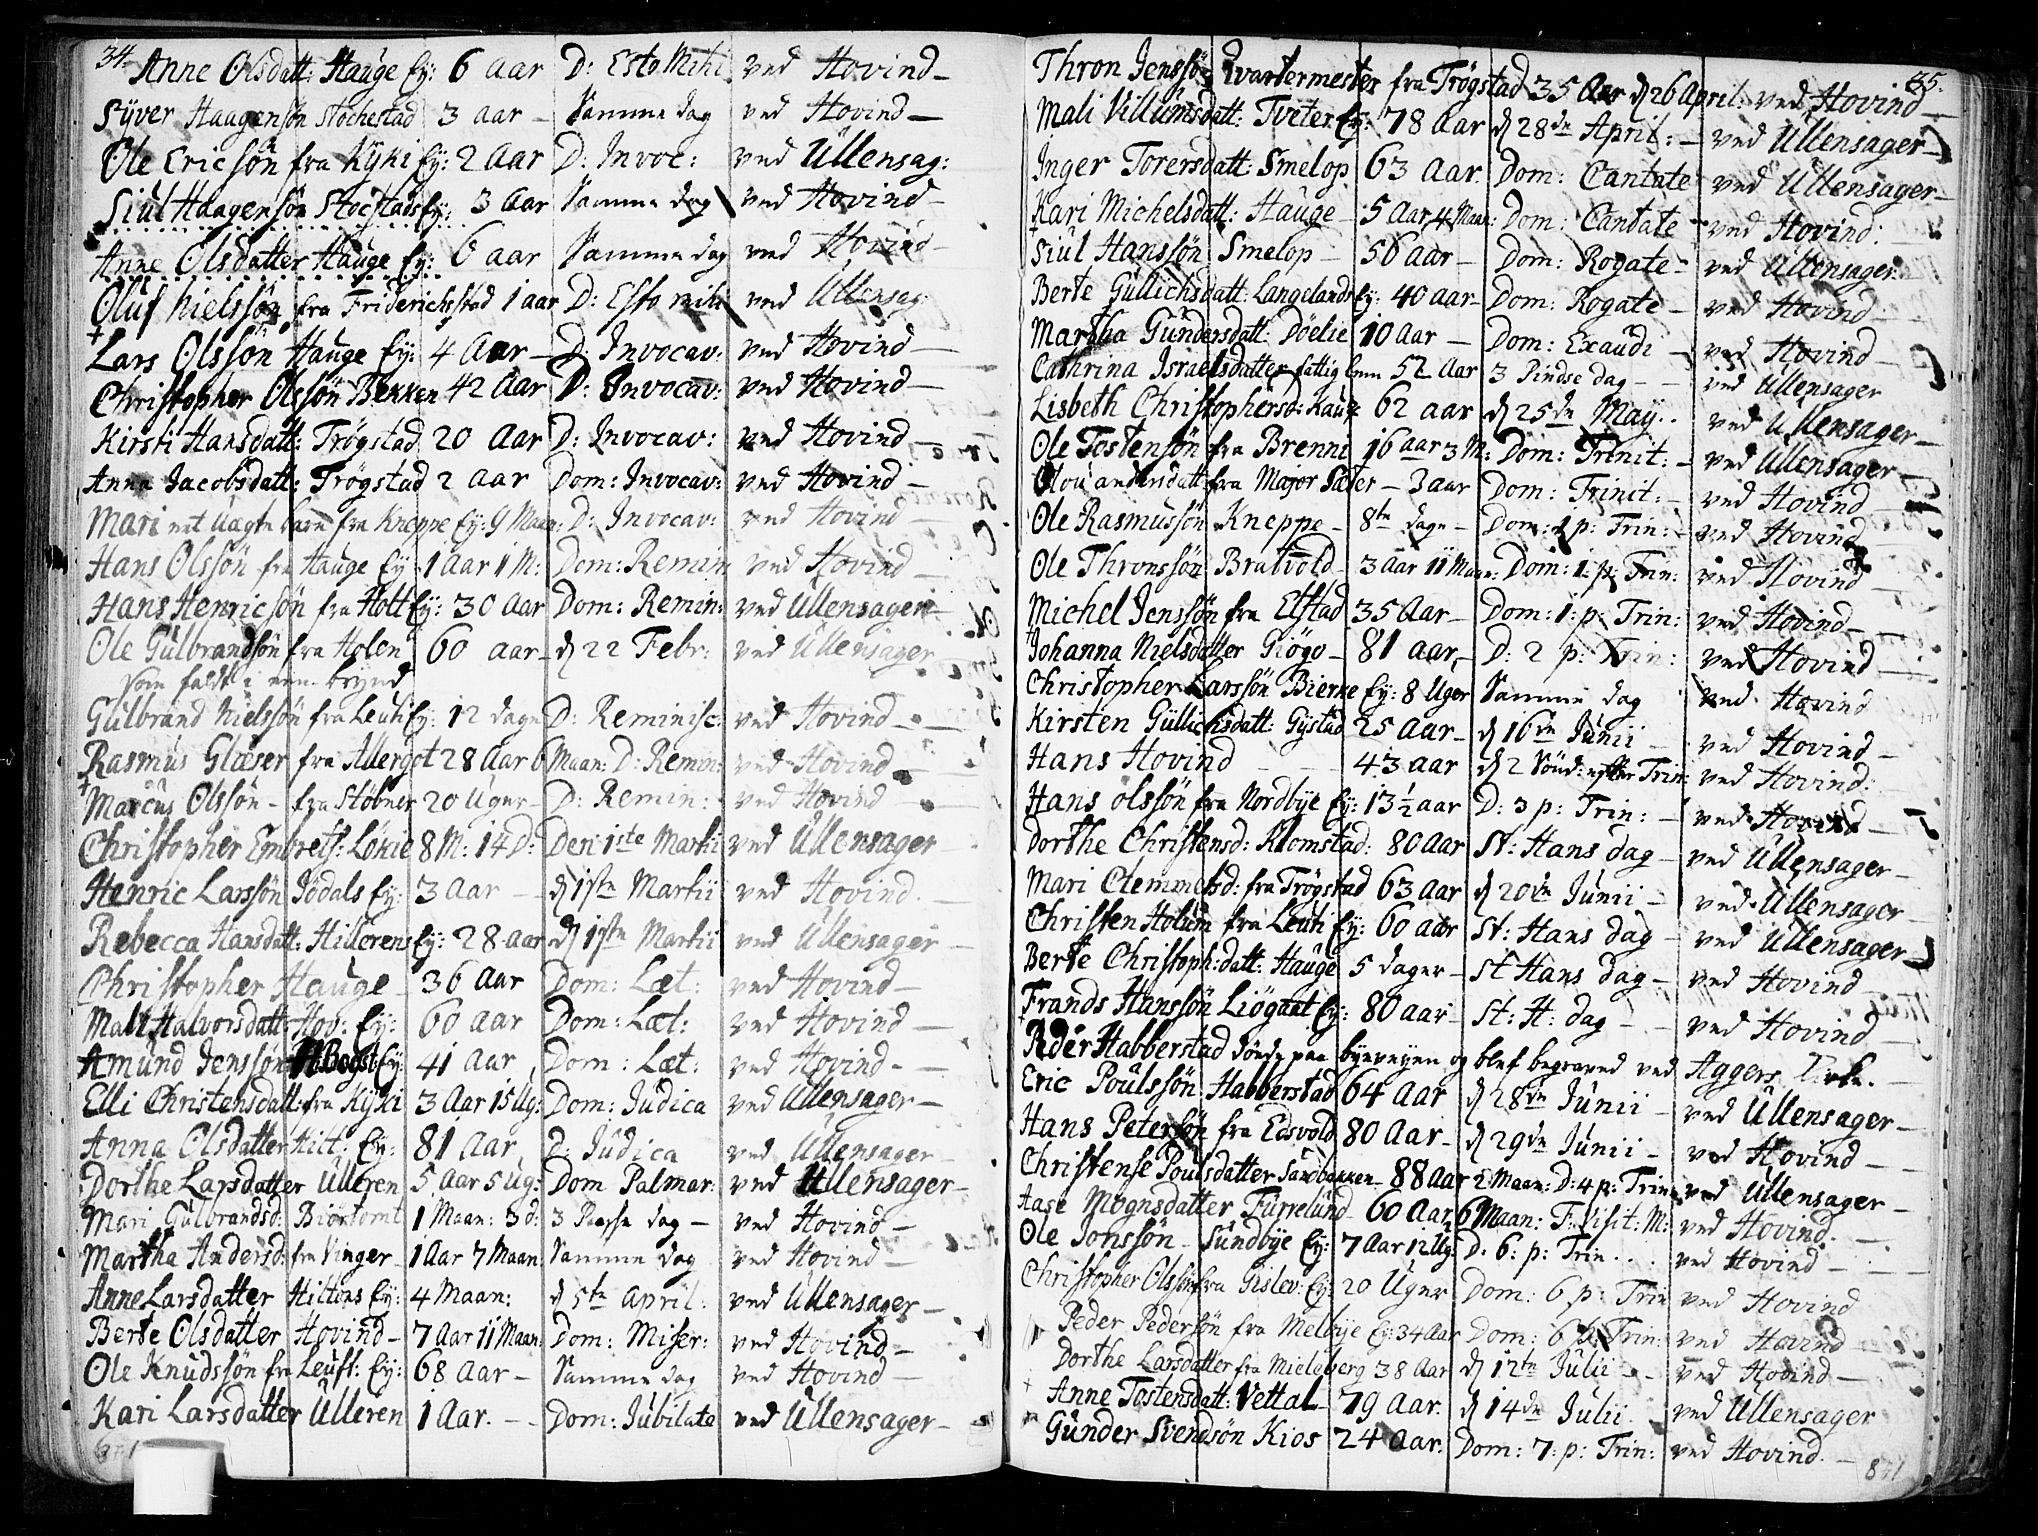 34.
Anne Olsdatt: Hauge Ey: 6 aar D: Esto Mihi ved Hovind
Syver Haagensön Stochestad 3 aar Samme dag ved Hovind
Ole Ericsön fra Kyki Ey: 2 Aar D: Invoc: ved Ullensag:
Siul Haagensön Stocstads Ey: 3 Aar Samme dag ved Hovind
Anne Olsdatter Hauge Ey: 6 aar Samme dag ved Hovind
Oluf Nielssön fra Friderichstad 1 aar D: Esto mihi ved Ullensag:
Lars Olssön Hauge Ey: 4 Aar D: Invocav: ved Hovind
Christopher Olssön Bekken 42 Aar D: Invocav: ved Hovind
Kirsti Hansdatt: Trögstad 20 Aar D: Invocav: ved Hovind
Anna Jacobsdatt: Trögstad 2 aar Dom: Invocav: ved Hovind
Mari ert barn fra Kneppe Ey: 9 Maan: D: Invocav: ved Hovind
Hans Olssön fra Hauge Ey 1 Aar 1 M: Dom: Remin: ved Hovind
Hans Henricsön fra Holt Ey: 30 Aar Dom: Remin: ved Ullensager
Ole Gulbrandsön fra Holen 60 aar d 22 Febr: ved Ullensager
som faldt i een brynd
Gulbrand Nielssön fra Leuti Ey: 12 dage D: Reminisc: ved Hovind
Rasmus Glæser fra Allergot 28 Aar 6 Maan: D: Remin: ved Hovind
Marcus Olssön fra Stöbner 20 Uger D: Remin: ved Hovind
Christopher Embrets: Lökie 8 M: 14 D: Den 1ste Martii ved Ullensager
Henric Larssön Jödals Ey: 3 Aar d 1ste Martii ved Hovind
Rebecca Hansdatt: Hillerens Ey: 28 Aar d 1ste Martii ved Ullensager
Christopher Hauge 36 Aar Dom: Læt: ved Hovind
Mali Halvorsdatt: Hov: Ey: 60 aar Dom: Læt: ved Hovind
Amund Jenssön Bogst Ey: 41 aar Dom: Læt: ved Hovind
Elli Christensdatt: fra Kyki 3 Aar 15 Ug: Dom: Judica ved Ullensager
Anna Olsdatter Hilt: Ey: 81 Aar D: Judica ved Ullensager
Dorthe Larsdatter Ulleren 5 Aar 5 ug: Dom Palmar: ved Ullensager
Mari Gulbrandsd: Biörtomt 1 Maan: 3 d: 3 Paaske dag ved Hovind
Martha Andersd: fra Vinger 1 Aar 7 Maan: Samme dag ved Hovind
Anne Larsdatter Hiltons Ey: 4 Maan: d 5te April: ved Ullensager
Berte Olsdatter Hovind 7 Aar 11 Maan: Dom: Miser: ved Hovind
Ole Knudssön fra Leuff: Ey: 68 Aar Samme dag ved Hovind
Kari Larsdatter Ulleren 1 Aar. Dom: Jubilate ved Ullensager
35.
Thron Jenssön Qvartermester fra Trögstad 35 Aar d 26 April: ved Hovind
Mali Villumsdatt: Tveter Ey: 78 Aar d 28de April: ved Ullensager
Inger Torersdatt: Smelop 63 Aar. Dom: Cantate ved Ullensager
Kari Michelsdatt: Hauge 5 Aar 4 Maan: Dom: Cantate ved Hovind:
Siul Hanssön Smelop 56 aar Dom: Rogate ved Ullensager
Berte Gullichsdatt: Langelands Ey: 40 aar Dom: Rogate ved Hovind
Martha Gundersdatt: Döelie 10 Aar Dom: Exaudi ved Hovind
Cathrina Israelsdatter fattig lem 52 Aar 3 Pindse dag ved Ullensager
Lisbeth Christophersd: Hauge 62 aar d 25de May. ved Ullensager
Ole Tostensön fra Brenni 16 aar 3 M: Dom: Trinit: ved Ullensager
Olou andersdatt fra Major Sæter 3 aar Dom: Trinit: ved Hovind
Ole Rasmussön Kneppe 8te dage Dom: 1 p: Trin: ved Hovind
Ole Thronssön Bratvold 3 aar 11 Maan: Dom: 1: p: Trin: ved Hovind
Michel Jenssön fra Elstad 35 Aar Dom: 1: p: Trin: ved Hovind
Johanna Nielsdatter Giögo 81 aar D: 2 p: Trin: ved Hovind
Christopher Larssön Bierke Ey: 8 Uger Samme dag ved Hovind
Kirsten Gullichsdatt: Gystad 25 Aar d 16de Junii ved Hovind
Hans Hovind 43 aar d 2 Sönd: efter Trin: ved Hovind:
Hans olssön fra Nordbye Ey: 13½ aar D: 3 p: Trin: ved Hovind
Dorthe Christensd: Klomstad: 80 Aar St: Hans dag ved Ullensager
Mari Clemmetsd: fra Trögstad 63 Aar d 20de Junii ved Ullensager
Christen Holum fra Leuti Ey: 60 aar St: Hans dag ved Ullensager
Berte Christoph:datt: Hauge 5 dager St Hans dag ved Hovind
Frands Hanssön Liögaat Ey: 80 aar St: H: dag ved Hovind
Peder Habberstad döde paa byeveyen og blef begraved ved Aggers Kirke.
Eric Poulssön Habberstad 64 Aar d 28de Junii ved Ullensager
Hans Petersön fra Edsvold 80 Aar d 29de Junii ved Hovind
Christense Poulsdatter Sandbakken 88 Aar 2 Maan: D: 4 p: Trin: ved Ullensager
Aase Mognsdatter Furrelund 60 Aar 6 Maan: F: Visit: M: ved Hovind.
Ole Jonssön Sundbye Ey: 7 Aar 12 Ug: D: 6: p: Trin. ved Hovind
Christopher Olssön fra Gislev: Ey: 20 Uger Dom: 6 p: Trin ved Hovind
Peder Pedersön fra Melbye Ey: 34 Aar Dom: 6 p: Trin: ved Hovind
Dorthe Larsdatter fra Mieleberg 38 Aar d 12te Julii ved Hovind
Anne Tostensdatt: Vettal 79 Aar. d 14de Julii ved Ullensager
Gunder Svendsön Kios 24 Aar. Dom: 7: p: Trin: ved Hovind.